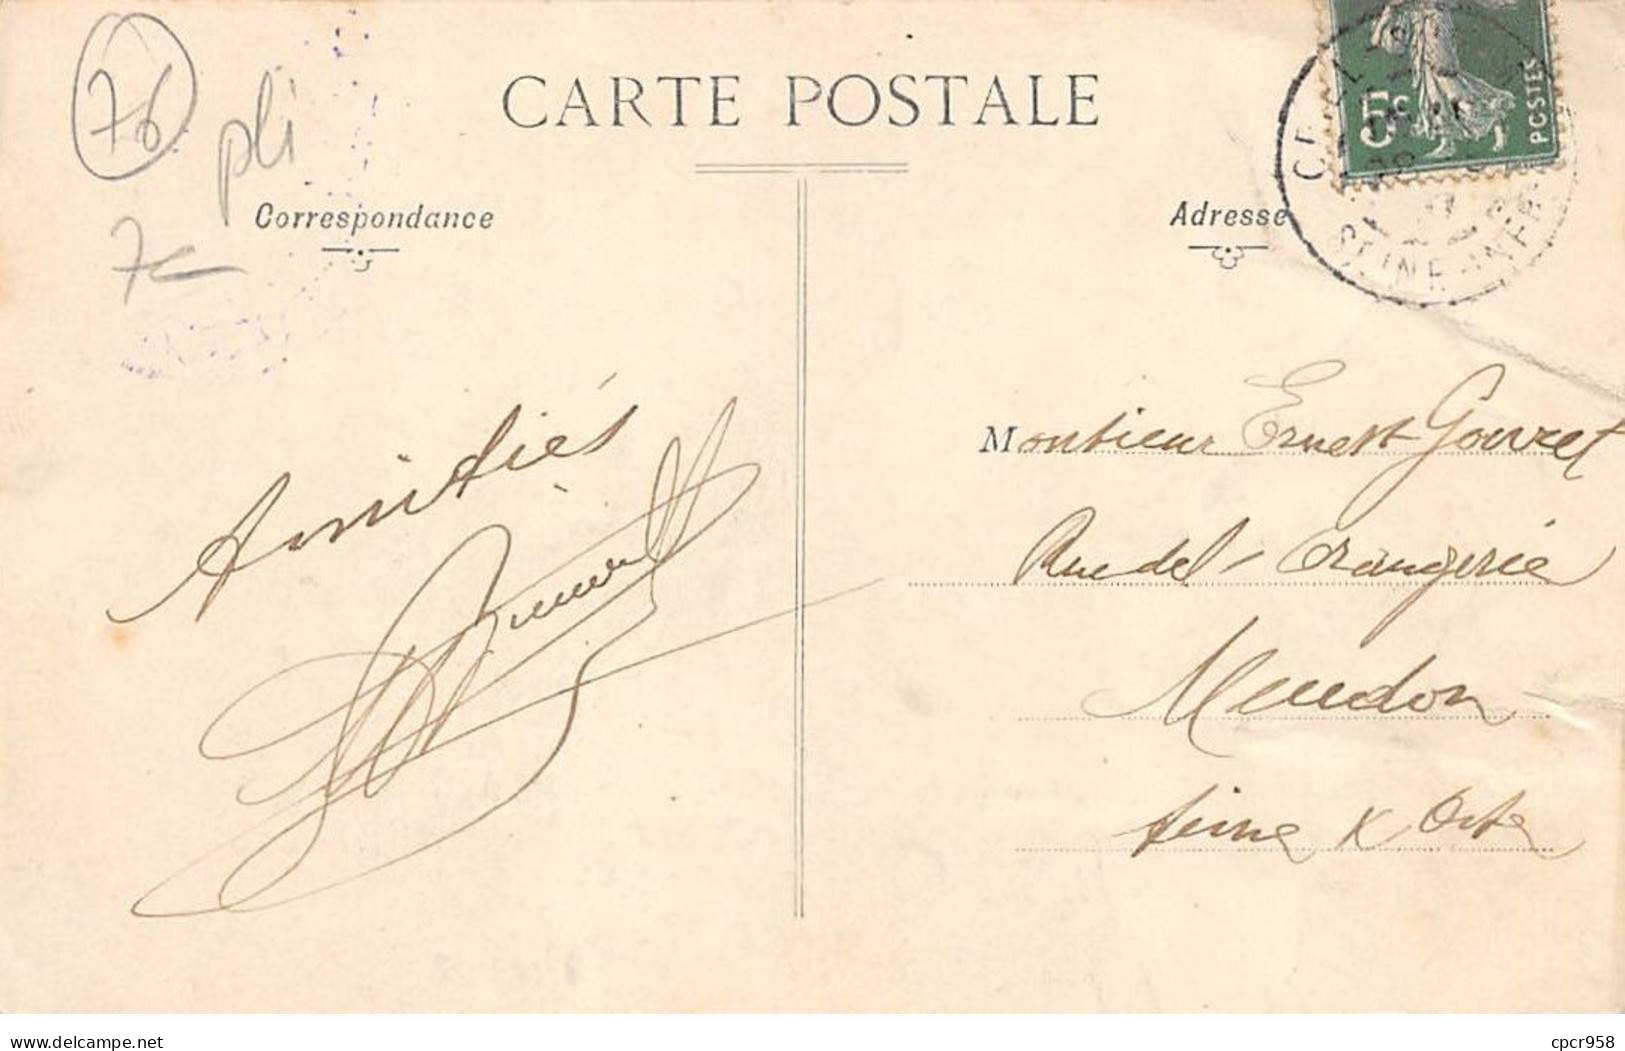 76
pli
7€
CARTE POSTALE
Correspondance
Adresse
5c
POSTES
SEINE-INFRE
Amitiés
Monsieur Ernest Gouvret
Rue de l'Orangerie
Meudon
Seine & Oise
delcampe.net
cpcr958